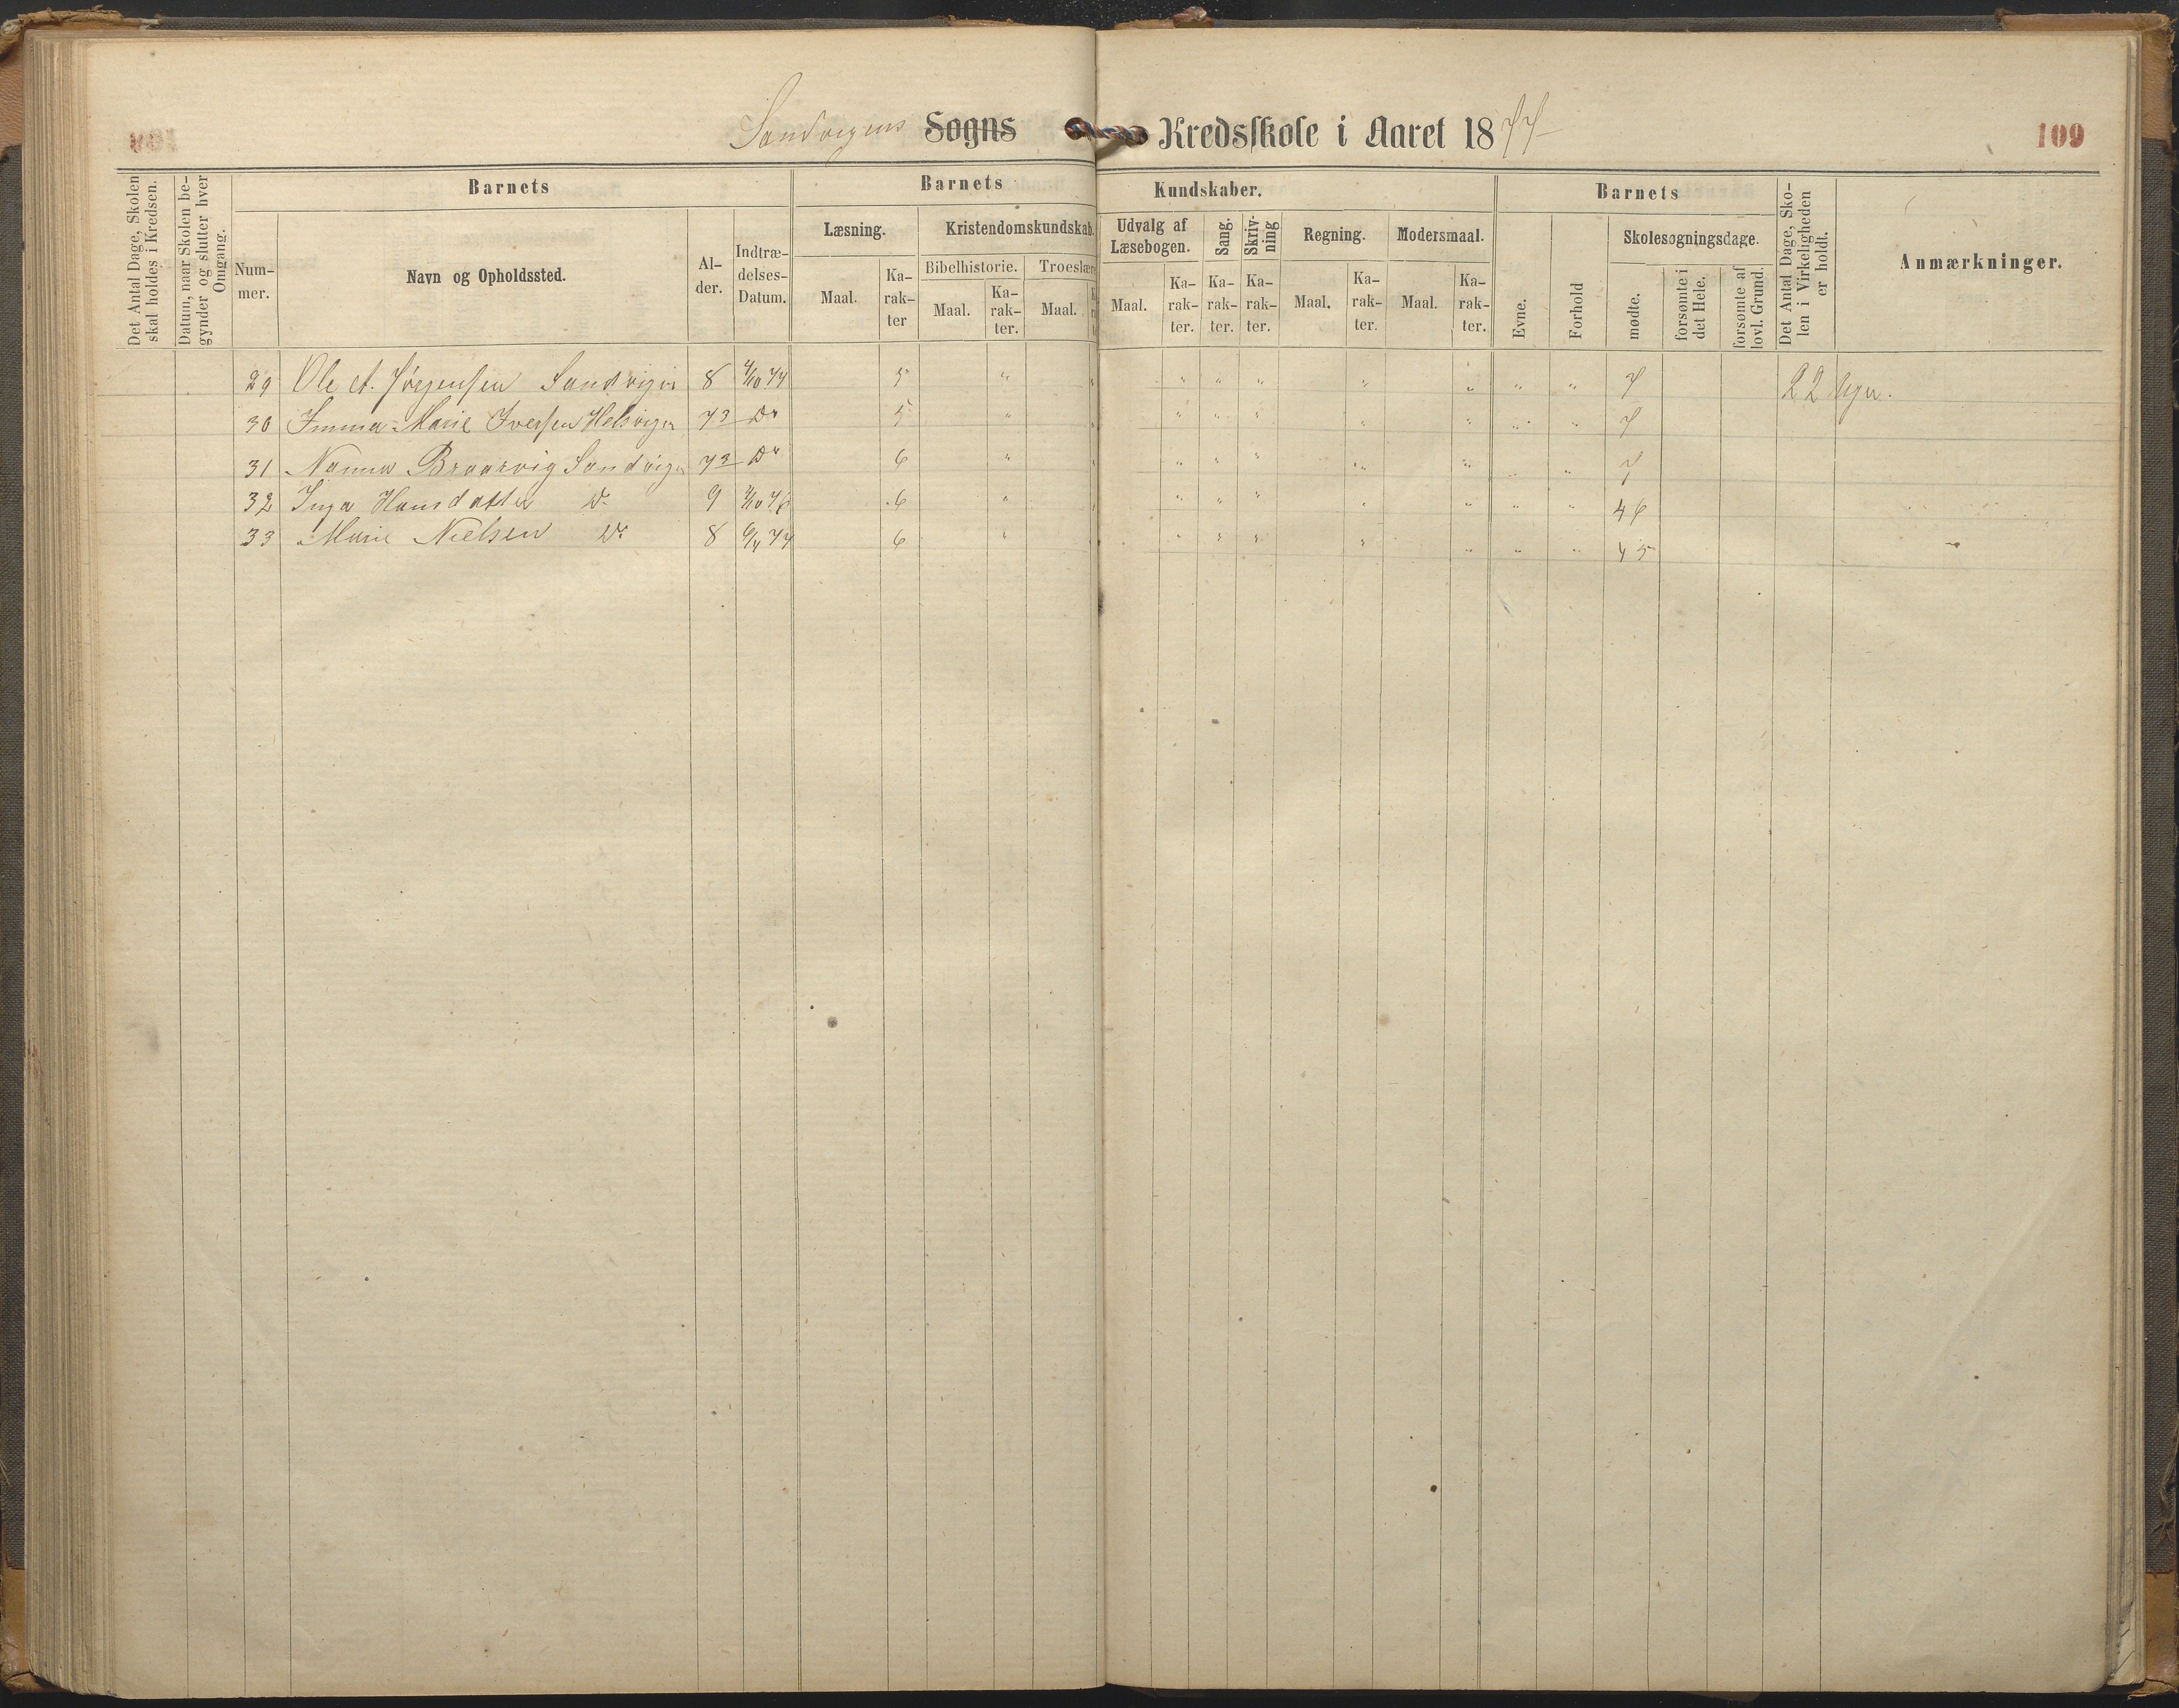 Sandvigens Sogns Kredsskole i Aaret 1877
109
Det Antal Dage, Skolen skal holdes i Kredsen.
Datum, naar Skolen begynder og slutter hver Omgang.
Barnets
Nummer.
Navn og Opholdssted.
Alder.
Indtrædelses-Datum.
Barnets Kundskaber.
Læsning.
Maal.
Karakter
Kristendomskundskab.
Bibelhistorie.
Maal.
Karakter.
Troeslære
Maal.
Udvalg af Læsebogen.
Maal.
Karakter.
Sang.
Karakter.
Skrivning
Karakter.
Regning.
Maal.
Karakter.
Modersmaal.
Maal.
Karakter.
Barnets
Evne.
Forhold
Skolesøgningsdage.
mødte.
forsømte i det Hele.
forsømte af lovl. Grund.
Det Antal Dage, Skolen i Virkeligheden er holdt.
Anmærkninger.
29 Ole A. Jørgensen Sandvigen 8 4/10 77 5 " " " " " " " " " 7 22 Uger.
30 Imma Marie Iversen Helsvigen 7½ Do 5 " " " " " " " " " 7
31 Nanna Braarvig Sandvigen 7½ Do 6 " " " " " " " " " 7
32 Inga Hansdatter Do 9 /10 76 6 " " " " " " " " " 46
33 Marie Nielsen Do 8 9/4 77 6 " " " " " " " " " 45